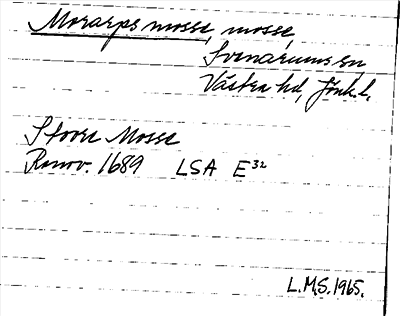 Morarps mosse, mosse,
Svenarums sn
Västra hd, Jönk.l.
Stoore Mosse
Renov. 1689 LSA E³²
L.M.S. 1965.